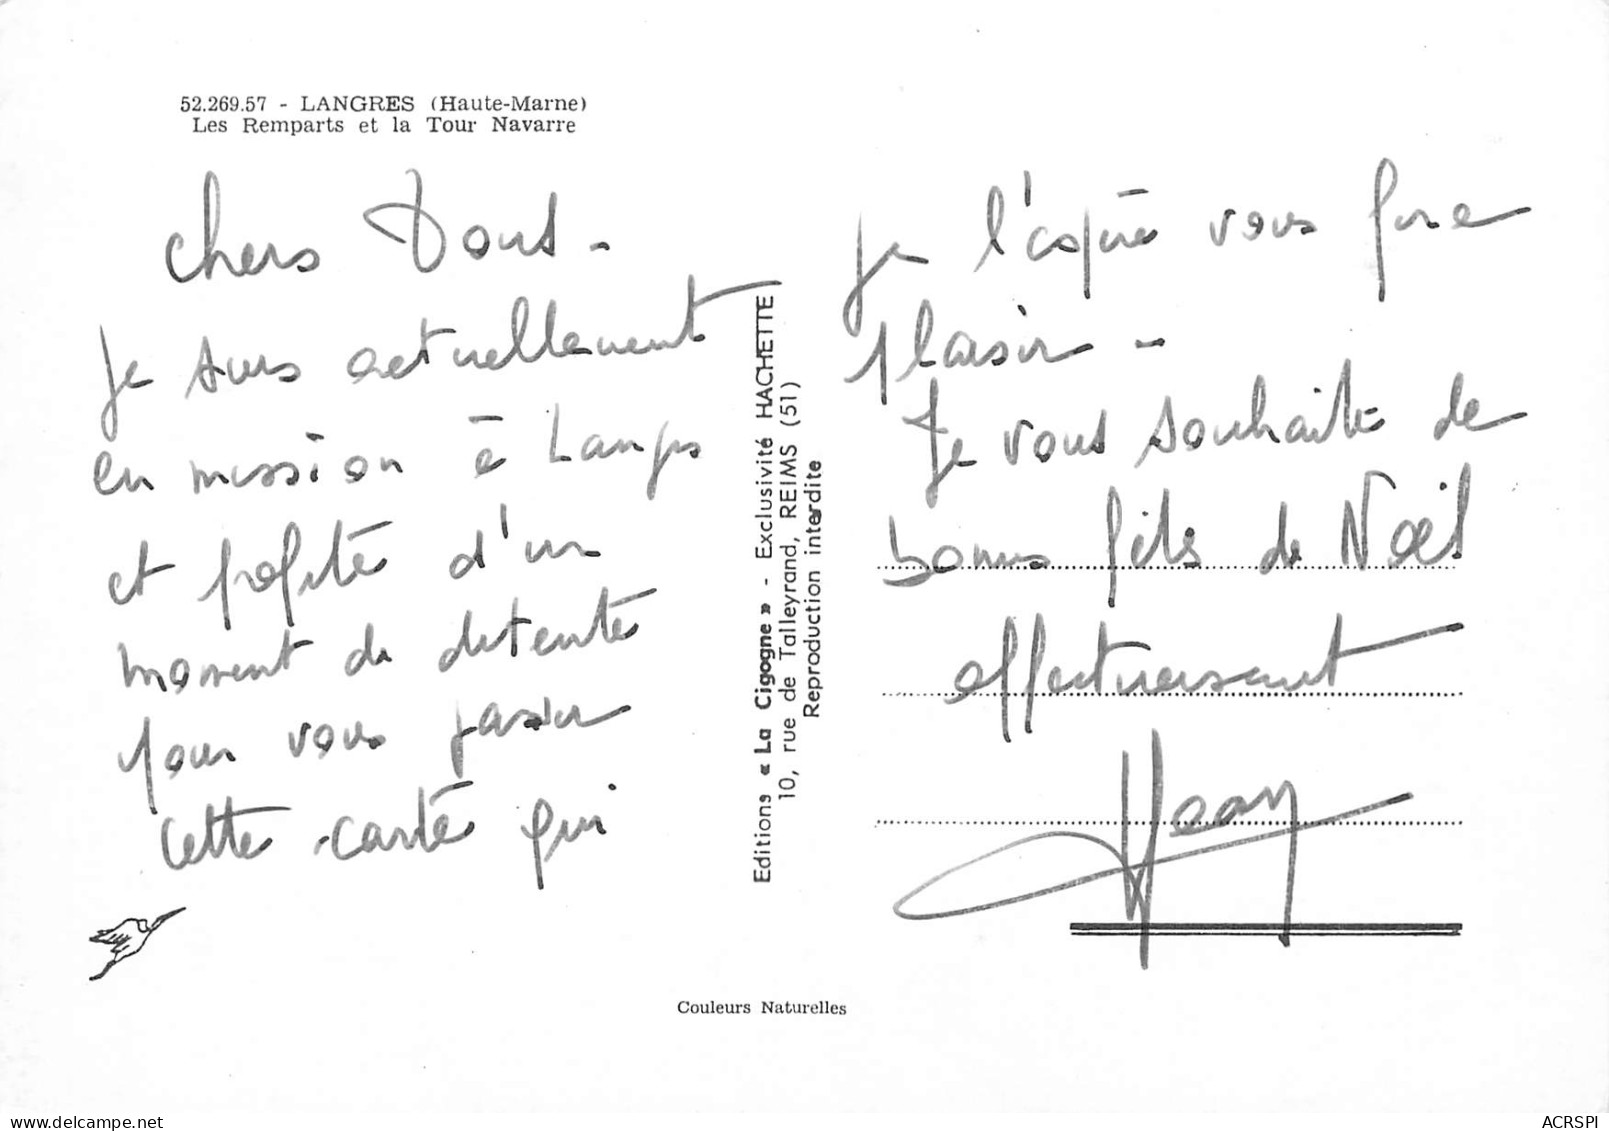 52.269.57 - LANGRES (Haute-Marne)
Les Remparts et la Tour Navarre
Chers Tous -
Je suis actuellement
en mission à Langres
et profite d'un
moment de détente
pour vous passer
cette carte qui
Editions « La Cigogne » - Exclusivité HACHETTE
10, rue de Talleyrand, REIMS (51)
Reproduction interdite
je l'espère vous fera
plaisir -
Je vous souhaite de
bonnes fêtes de Noël
affectueusement
Jean
Couleurs Naturelles
ACRSPI